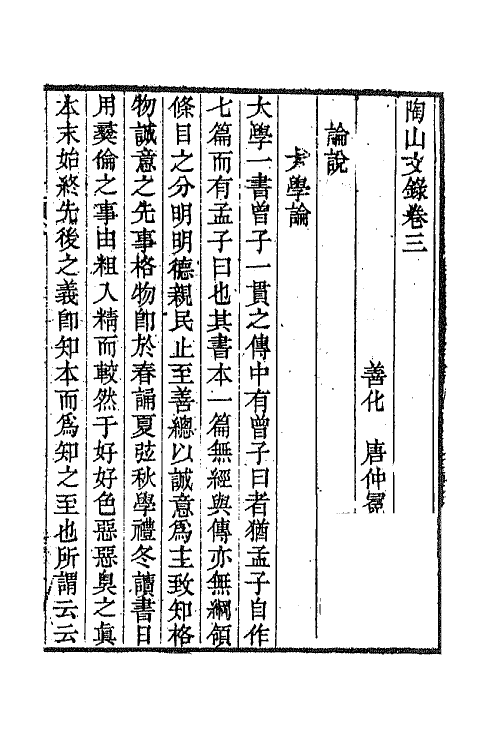 陶山文錄卷三
善化　唐仲冕
論說
大學論
大學一書曾子一貫之傳中有曾子曰者猶孟子自作
七篇而有孟子曰也其書本一篇無經與傳亦無綱領
條目之分明明德親民止至善總以誠意爲主致知格
物誠意之先事格物卽於春誦夏弦秋學禮冬讀書日
用彝倫之事由粗入精而較然于好好色惡惡臭之眞
本末始終先後之義卽知本而爲知之至也所謂云云